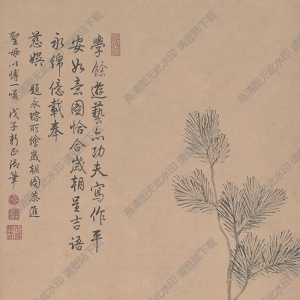 學餘遊藝亦功夫寫作平
安如意圖恰合歲朝呈吉語
永綿億載奉
慈娛
題永瑢所繪歲朝圖恭進
聖母以博一哂戊子新正御筆